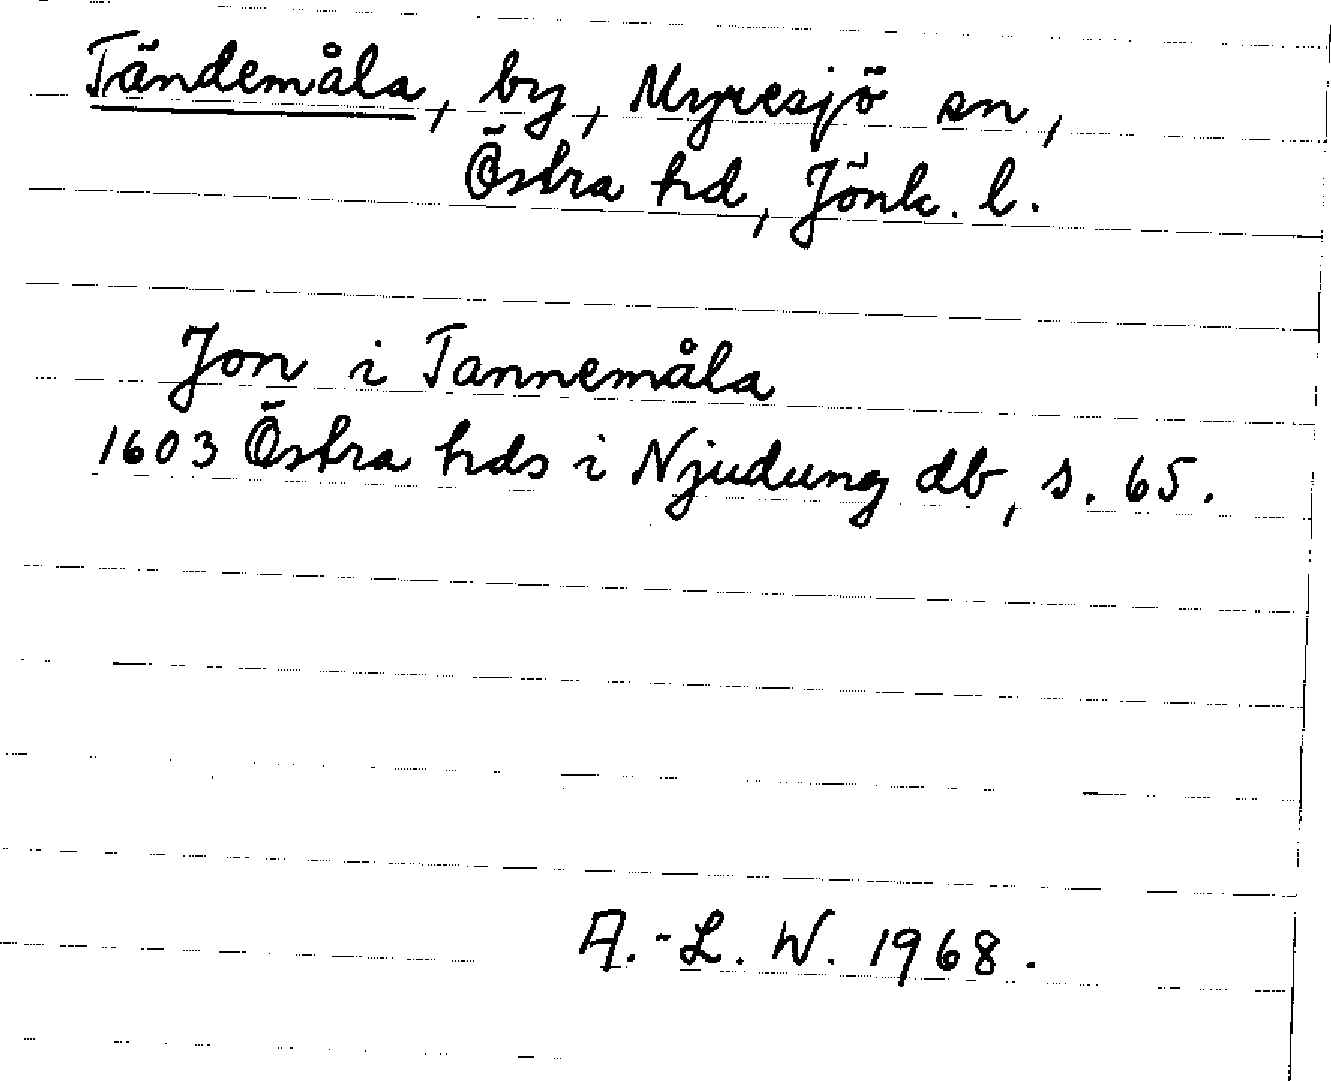 Tändemåla, by, Myresjö sn,
Östra hd, Jönk. l.
Jon i Tannemåla
1603 Östra hds i Njudung db, s. 65.
A.-L. W. 1968.